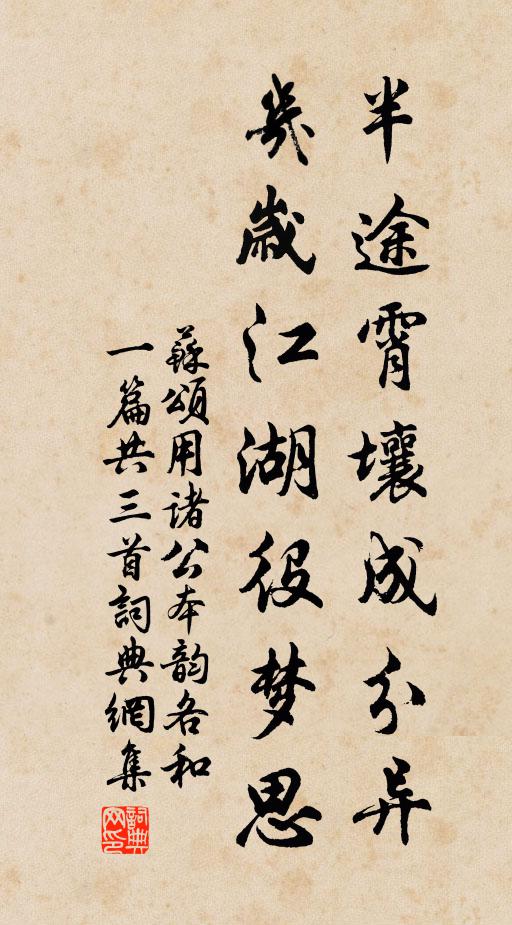 半途霄壤成分异
几岁江湖役梦思
蘇頌用诸公本韵各和
一篇共三首詞典網集
詞典网印